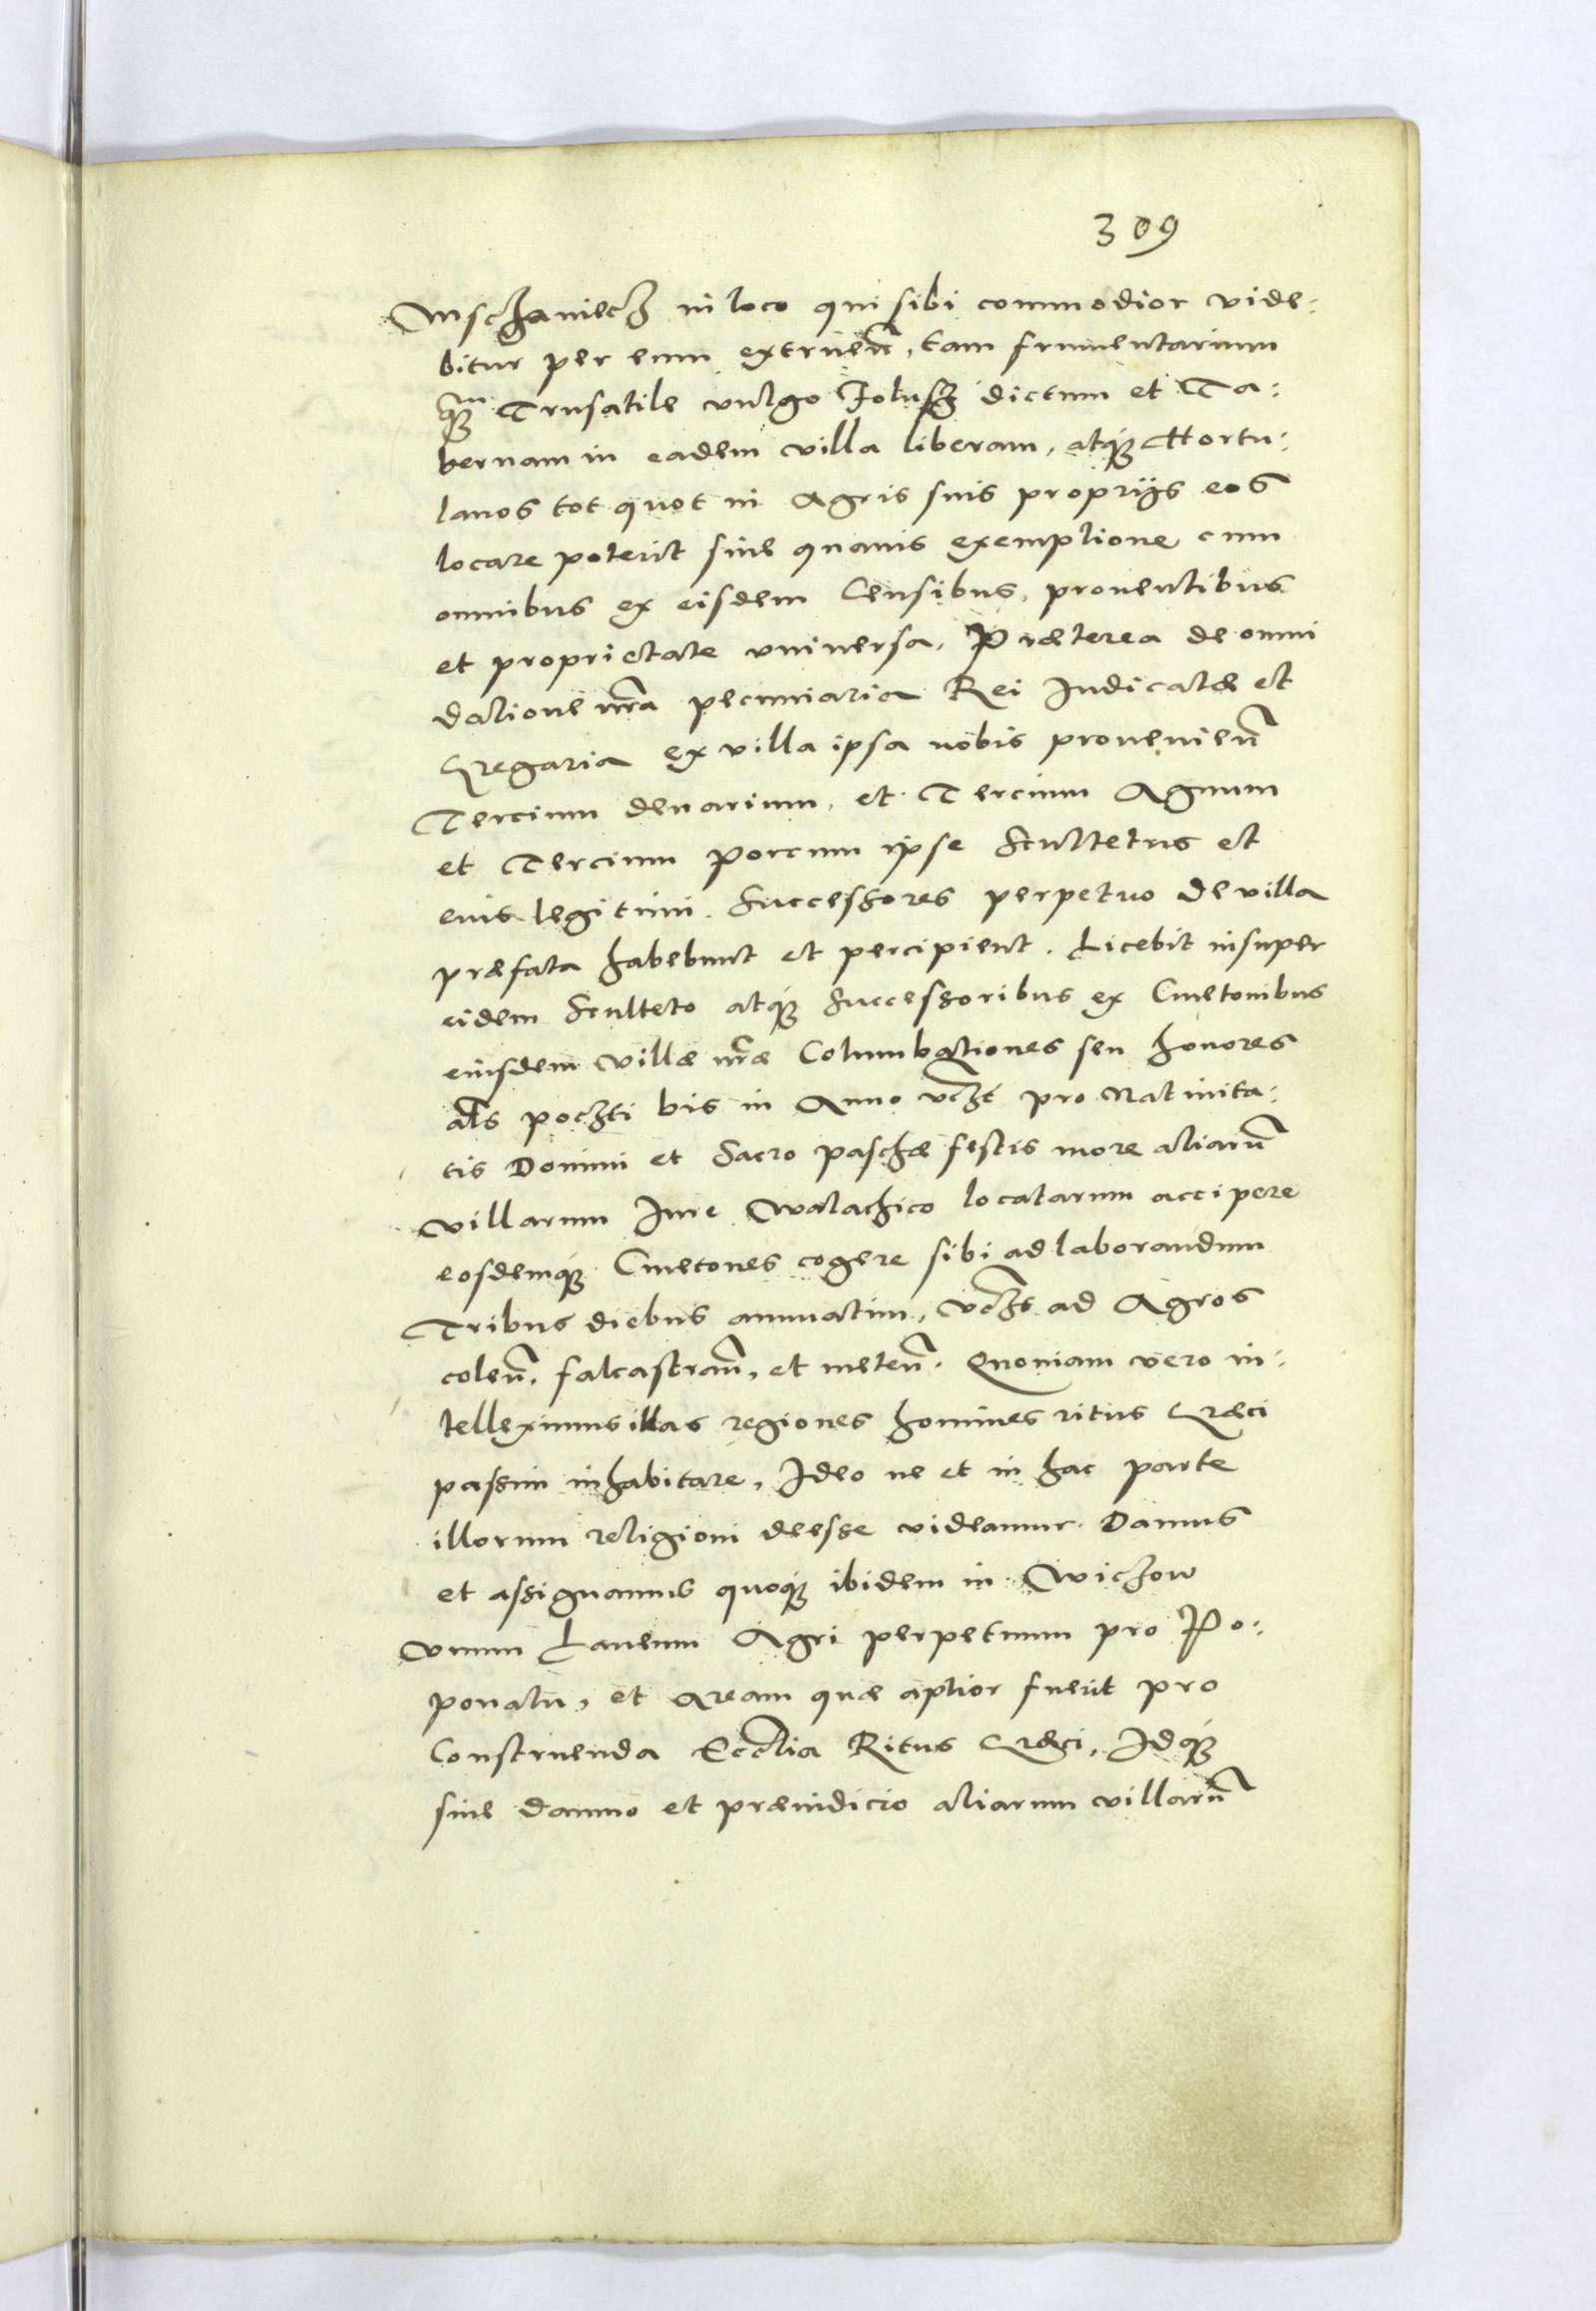 309
Mschaniecz in loco qui sibi commodior vide-
bitur per eum extruen, tam frumentarium
qm Trusatile vulgo Folusz dictum et Ta-
bernam in eadem villa liberam, atque Hortu-
lanos tot quot in Agris suis proprijs eos
locare poterit sine quavis exemptione cum
omnibus ex eisdem Censibus, proventibus
et proprietate universa. Præterea de omni
datione nra pecuniaria Rei Iudicatæ et
Gregaria ex villa ipsa nobis provenien
Tercium denarium, et Tercium Agnum
et Tercium Porcum ipse Scultetus et
eius legitimi Successores perpetuo de villa
præfata habebunt et percipient. Licebit insuper
eidem Sculteto atque Successoribus ex Cmetonibus
eiusdem villæ nræ Columbationes seu honores
als poczti bis in Anno vczt pro Nativita-
tis Domini et Sacro paschæ festis more aliaru
villarum Iure Walachico locatarum accipere
eosdemque Cmetones cogere sibi ad laborandum
Tribus diebus annuatim, vczt ad Agros
colen, falcastran, et meten. Quoniam vero in-
telleximus illas regiones homines ritus Græci
passim inhabitare, Ideo ne et in hac parte
illorum religioni deesse videamur. Damus
et assignamus quoque ibidem in Wiczow
vnum Laneum Agri perpetuum pro Po-
ponatu, et Aream quæ aptior fuerit pro
Construenda Ecclia Ritus Græci, Idque
sine damno et præiudicio aliarum villaru